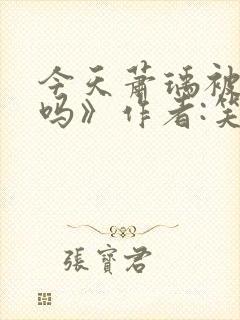 今天萧瑀被
吗》作者:笑
張寶君